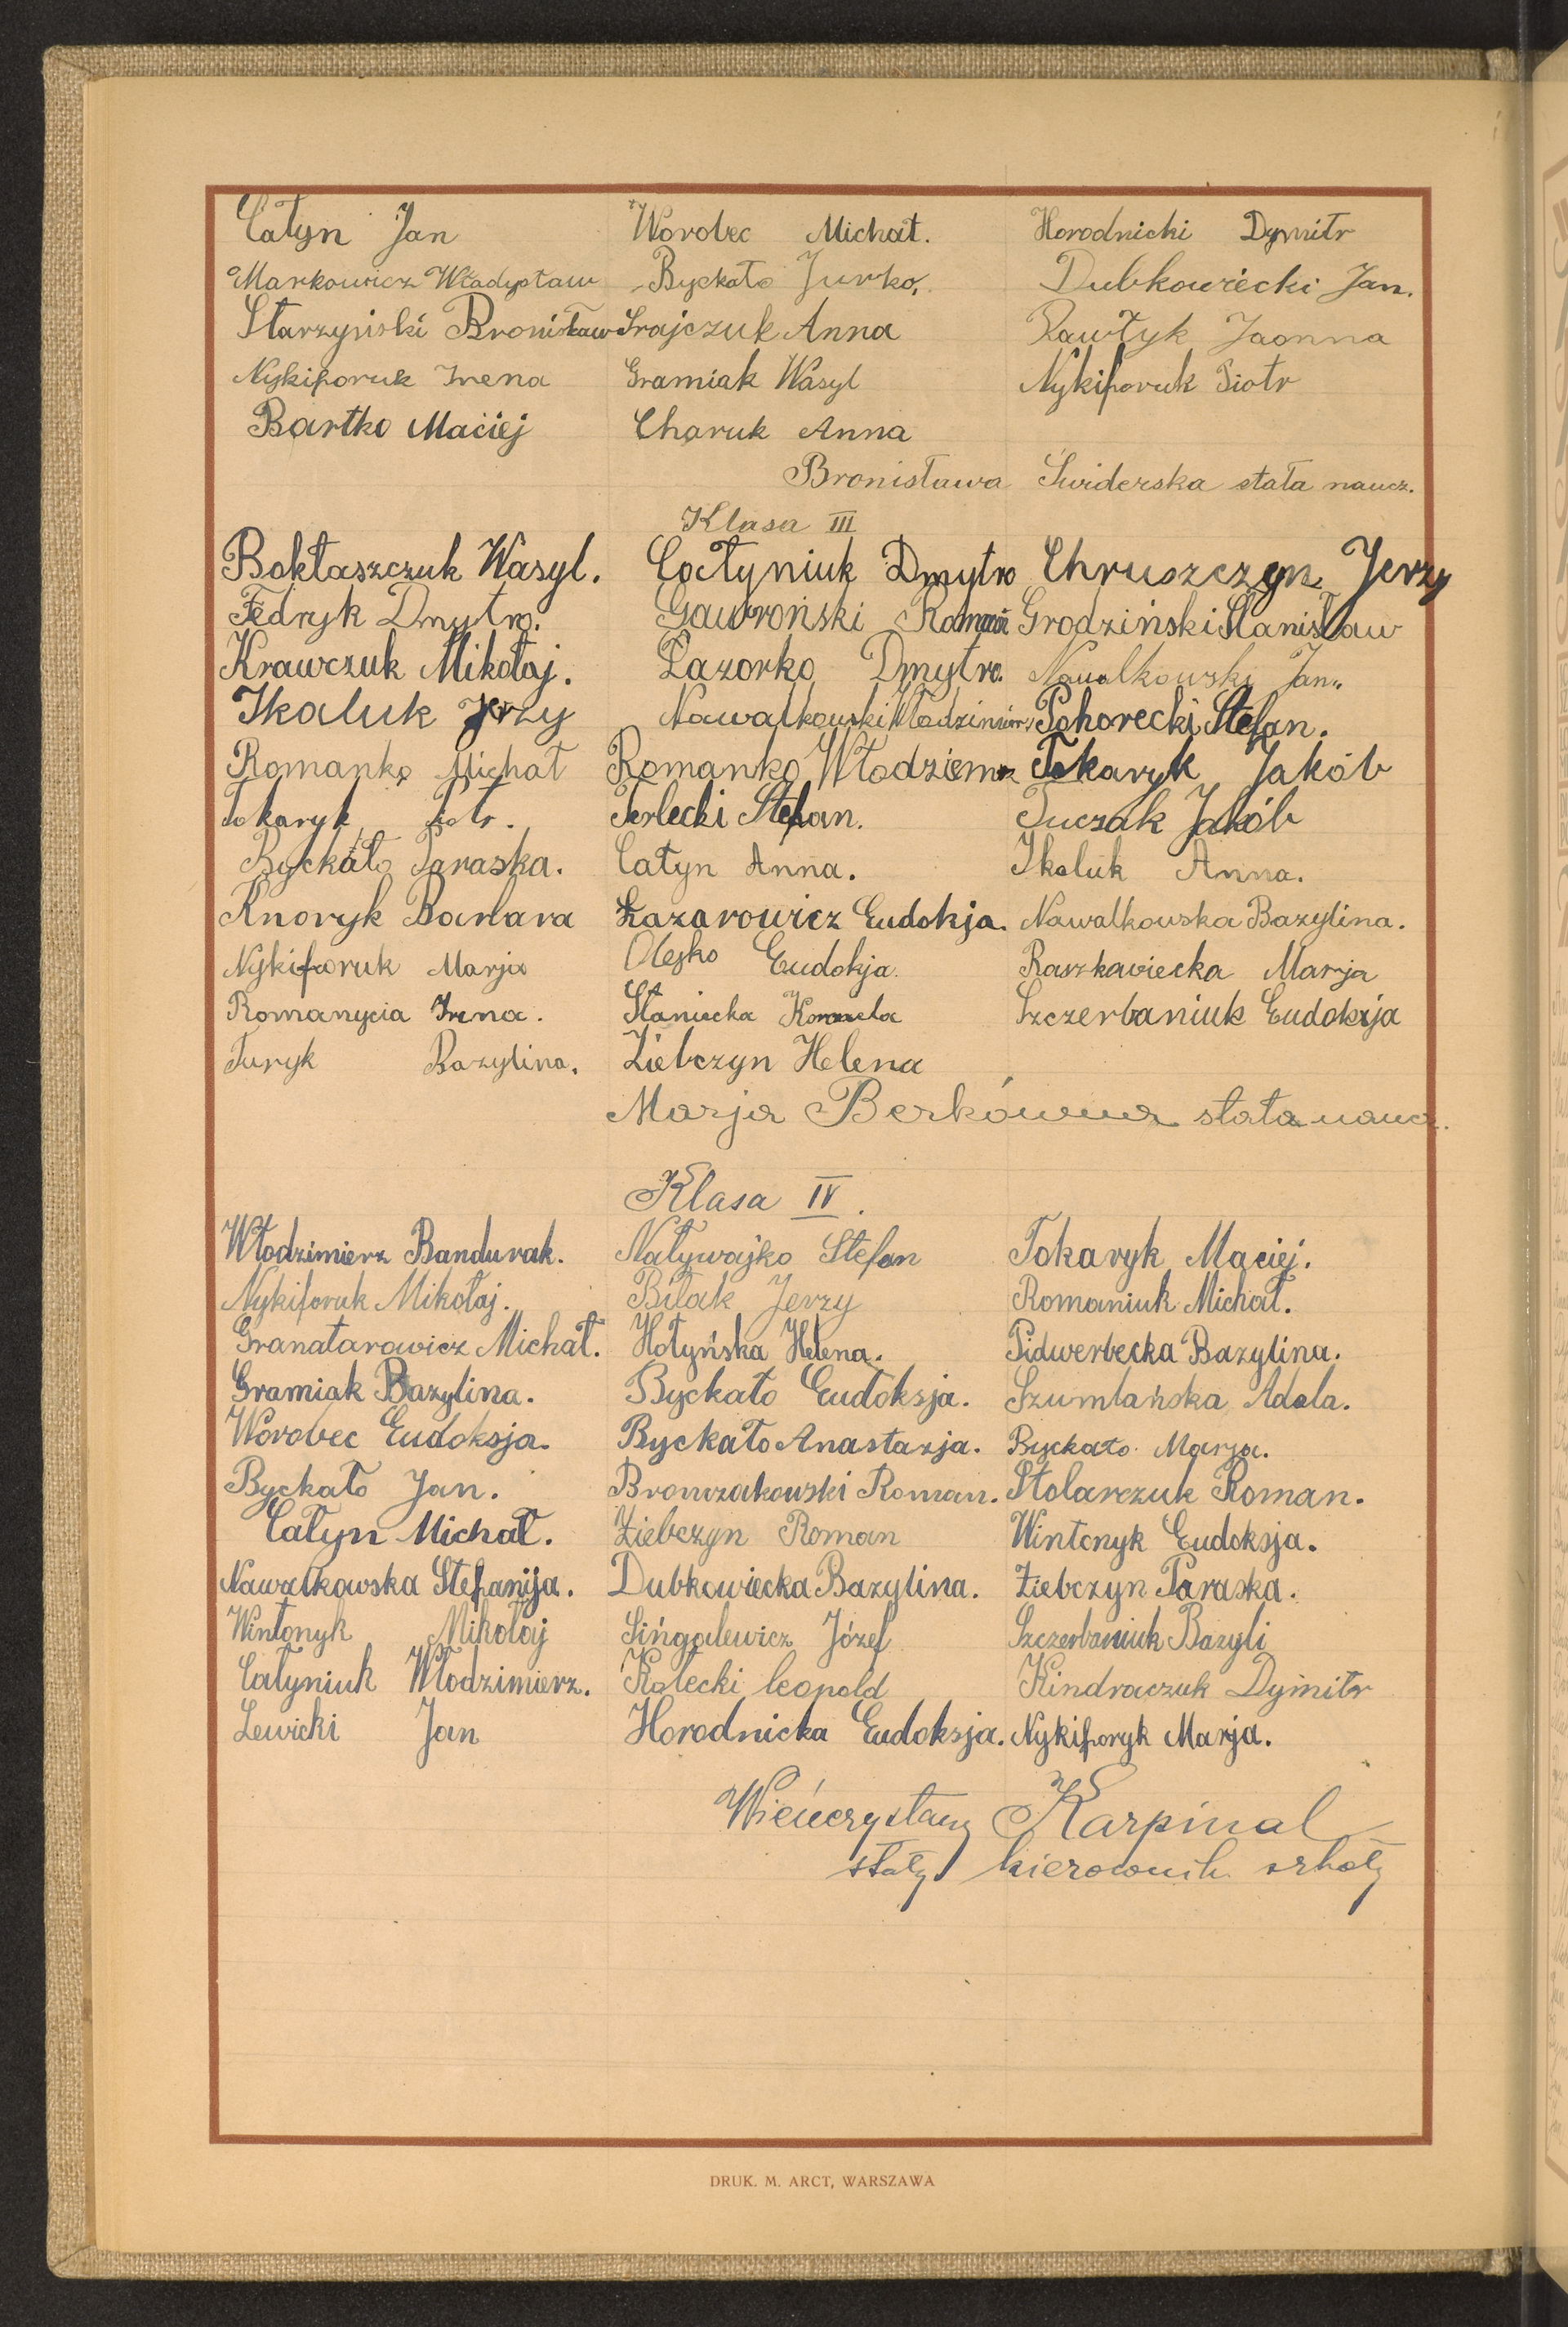 Całyn Jan Worobec Michał. Horodnicki Dymitr
Markowicz Władysław Byckało Jurko. Dubkowiecki Jan.
Starzyński Bronisław Srajczuk Anna Pawłyk Joanna
Nykiforuk Irena Gramiak Wasyl Nykiforuk Piotr
Bartko Maciej Charuk Anna
Bronisława Świderska stała naucz.
Klasa III
Bokłaszczuk Wasyl. Cołtyniuk Dmytro Chruszczyn Jerzy
Fedryk Dmytro. Gawroński Roman Grodziński Stanisław
Krawczuk Mikołaj. Łazorko Dmytro. Nawalkowski Jan.
Ikaluk Jerzy Nawalkowski Włodzimierz Pohorecki Stefan.
Romanko Michał Romanko Włodzimierz Tokaryk Jakób
Tokaryk Piotr. Terlecki Stefan. Tuczak Jakób
Byckało Paraska. Całyn Anna. Ikaluk Anna.
Knoryk Barbara Łazarowicz Eudokja. Nawalkowska Bazylina.
Nykiforuk Marja Olejko Eudokja. Raszkawiecka Marja
Romanycia Irena. Staniecka Szczerbaniuk Eudoksja
Turyk Bazylina. Ziebczyn Helena
Marja Berkówna stała naucz.
Klasa IV.
Włodzimierz Bandurak. Natywajko Stefan Tokaryk Maciej.
Nykiforuk Mikołaj. Biłak Jerzy Romaniuk Michał.
Granatarowicz Michał. Hołyńska Helena. Pidwerbecka Bazylina.
Gramiak Bazylina. Byckało Eudoksja. Szumlańska Adela.
Worobec Eudoksja. Byckało Anastazja. Byckało Marja.
Byckało Jan. Bronczakowski Roman. Stolarczuk Roman.
Całyn Michał. Ziebczyn Roman Wintonyk Eudoksja.
Nawalkowska Stefanija. Dubkowiecka Bazylina. Ziebczyn Paraska.
Wintonyk Mikołaj Sińgalewicz Józef Szczerbaniuk Bazyli
Całyniuk Włodzimierz. Kałecki Leopold Kindraczuk Dymitr
Lewicki Jan Horodnicka Eudoksja. Nykiforyk Marja.
Wieńczysław Karpinal
stały kierownik szkoły
DRUK. M. ARCT, WARSZAWA